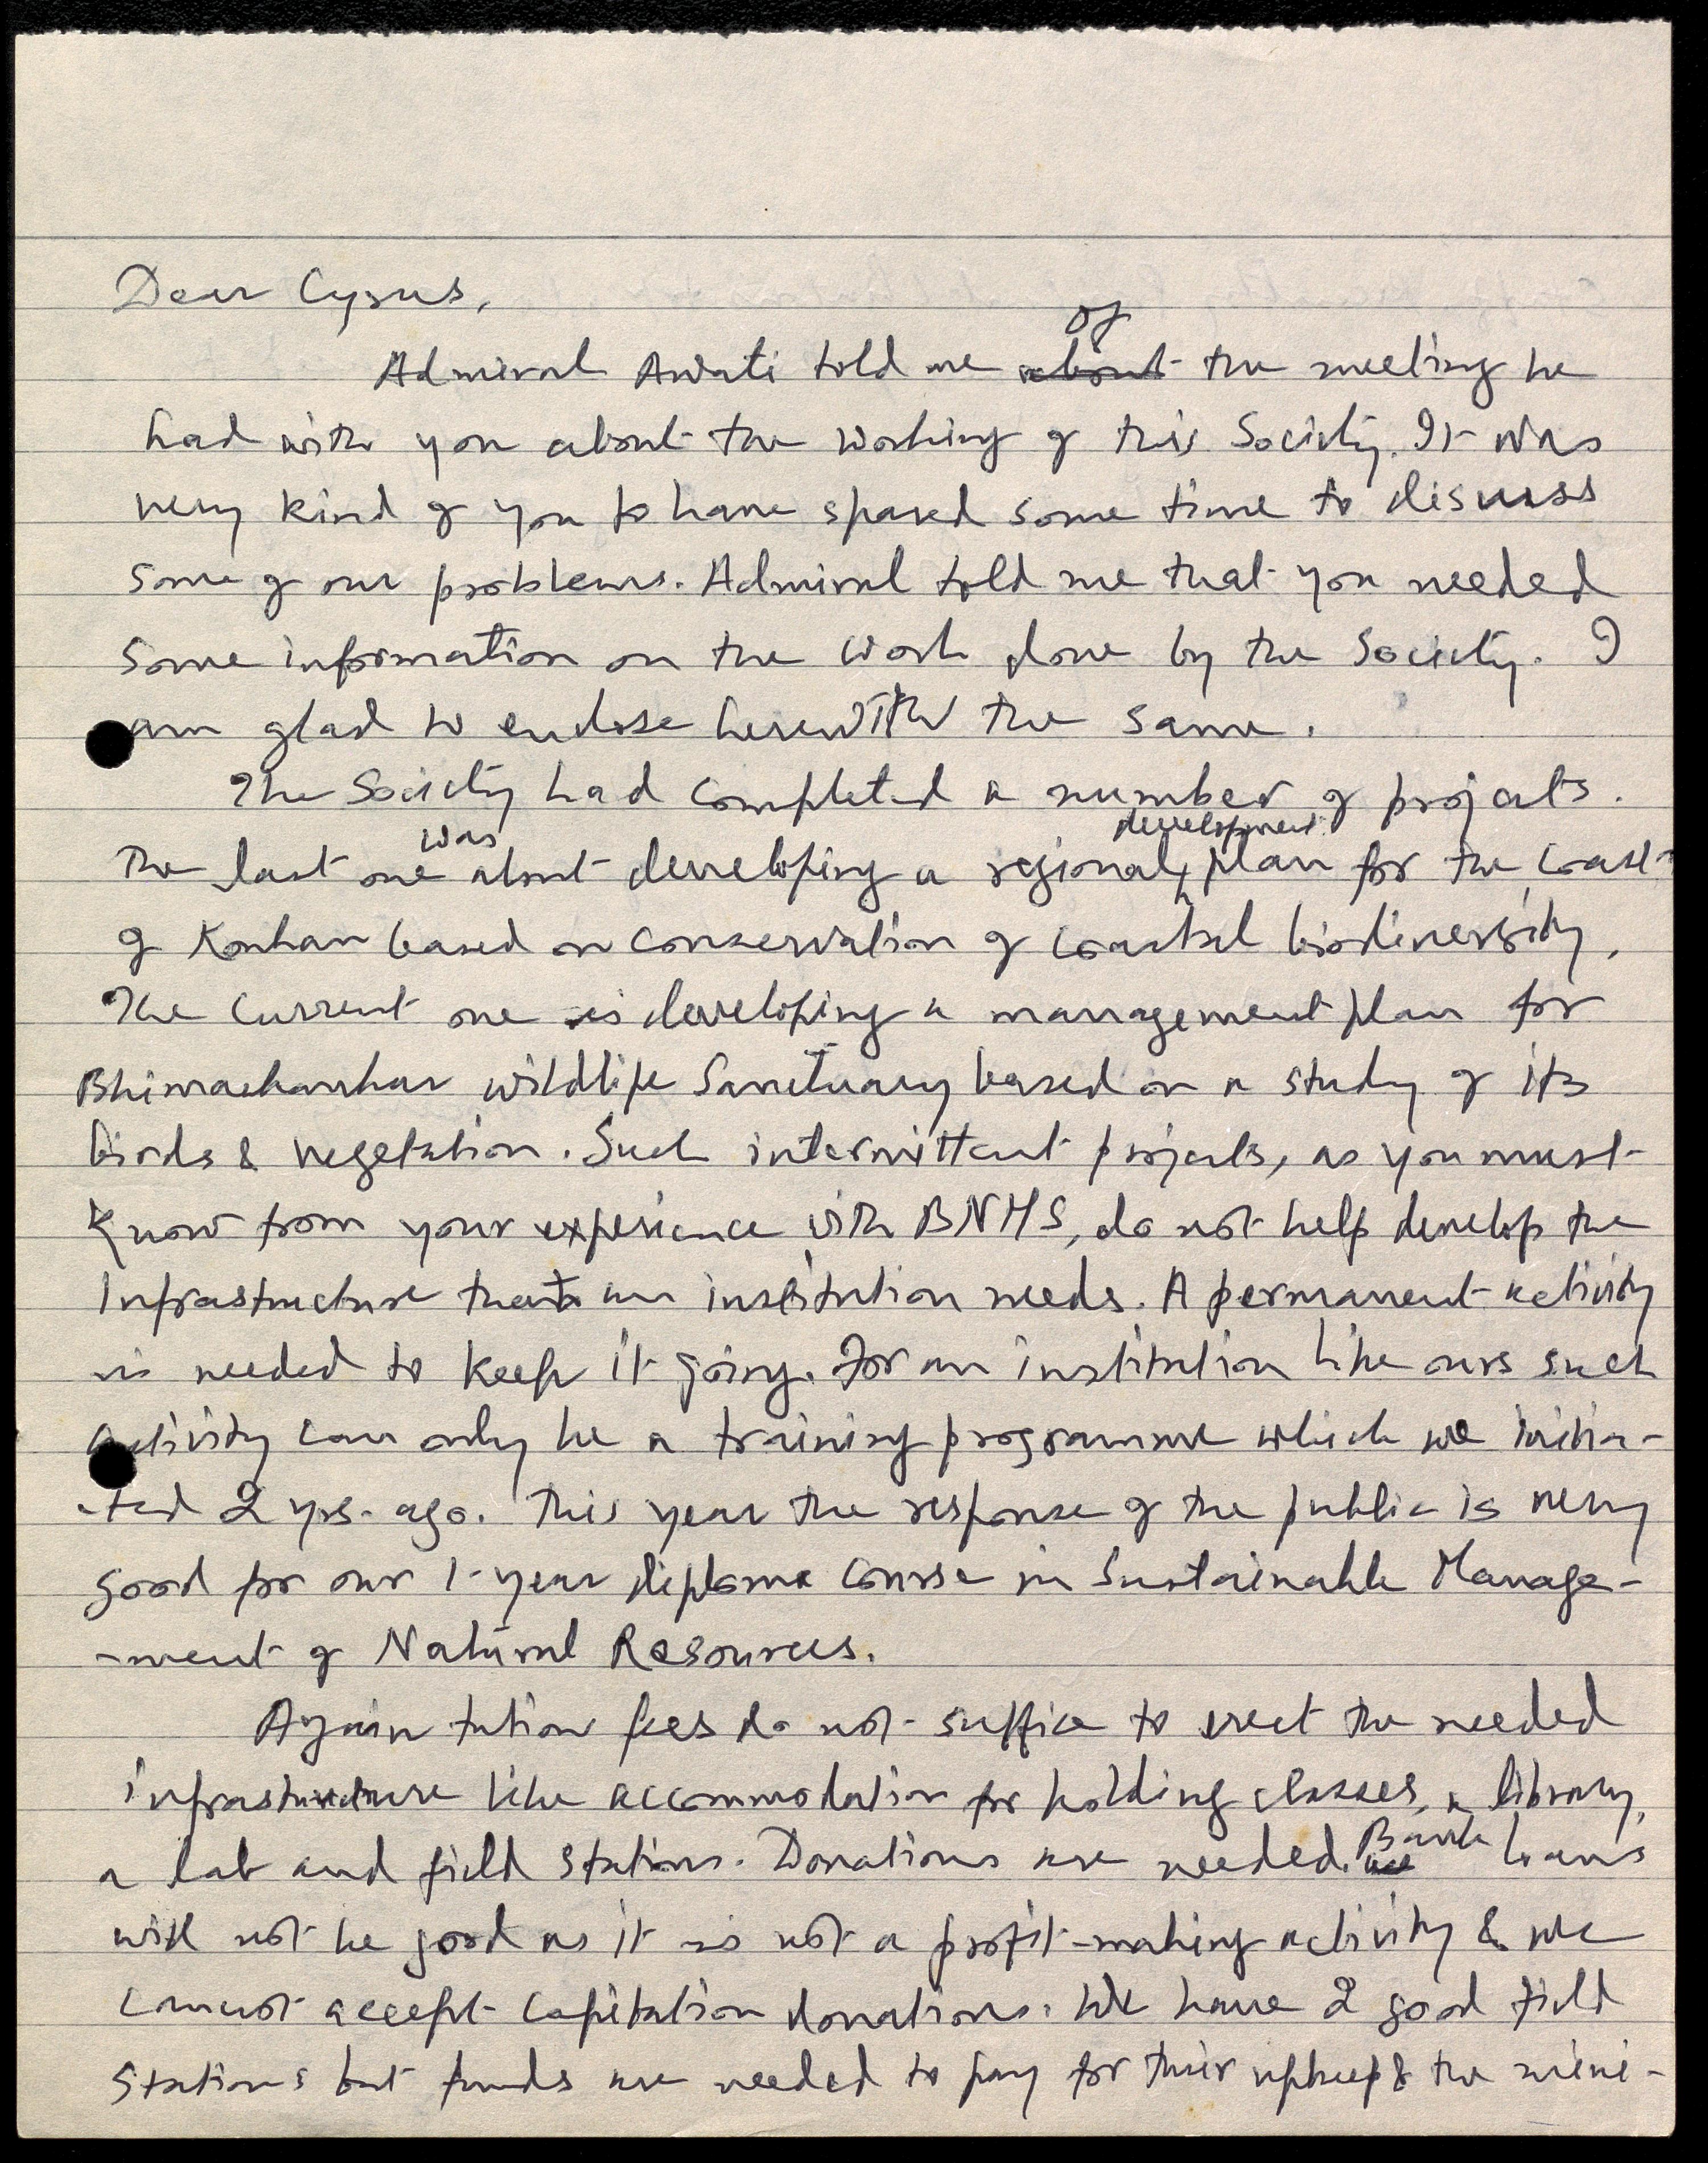 Dear Cyrus,
of
Admiral Awati told me about the meeting he
had with you about the working of this Society. It was
very kind of you to have spared some time to discuss
some of our problems. Admiral told me that you needed
some information on the work done by the Society. I
am glad to enclose herewith the same.
The Society had completed a number of projects.
was development
The last one about developing a regional plan for the coast
of Konkan based on conservation of coastal biodiversity.
The current one is developing a management plan for
Bhimashankar wildlife Sanctuary based on a study of its
birds & vegetation. Such intermittent projects, as you must
know from your experience with BNHS, do not help develop the
infrastructure that an institution needs. A permanent activity
is needed to keep it going. For an institution like ours such
activity can only be a training programme which we initia-
-ted 2 yrs. ago. This year the response of the public is very
good for our 1-year diploma course in Sustainable Manage-
-ment of Natural Resources.
Again tution fees do not suffice to erect the needed
infrastructure like accommodation for holding classes, a library,
a lab and field stations. Donations are needed. Bank loans
will not be good as it is not a profit-making activity & we
cannot accept capitation donations. We have 2 good field
stations but funds are needed to pay for their upkeep & the mini-